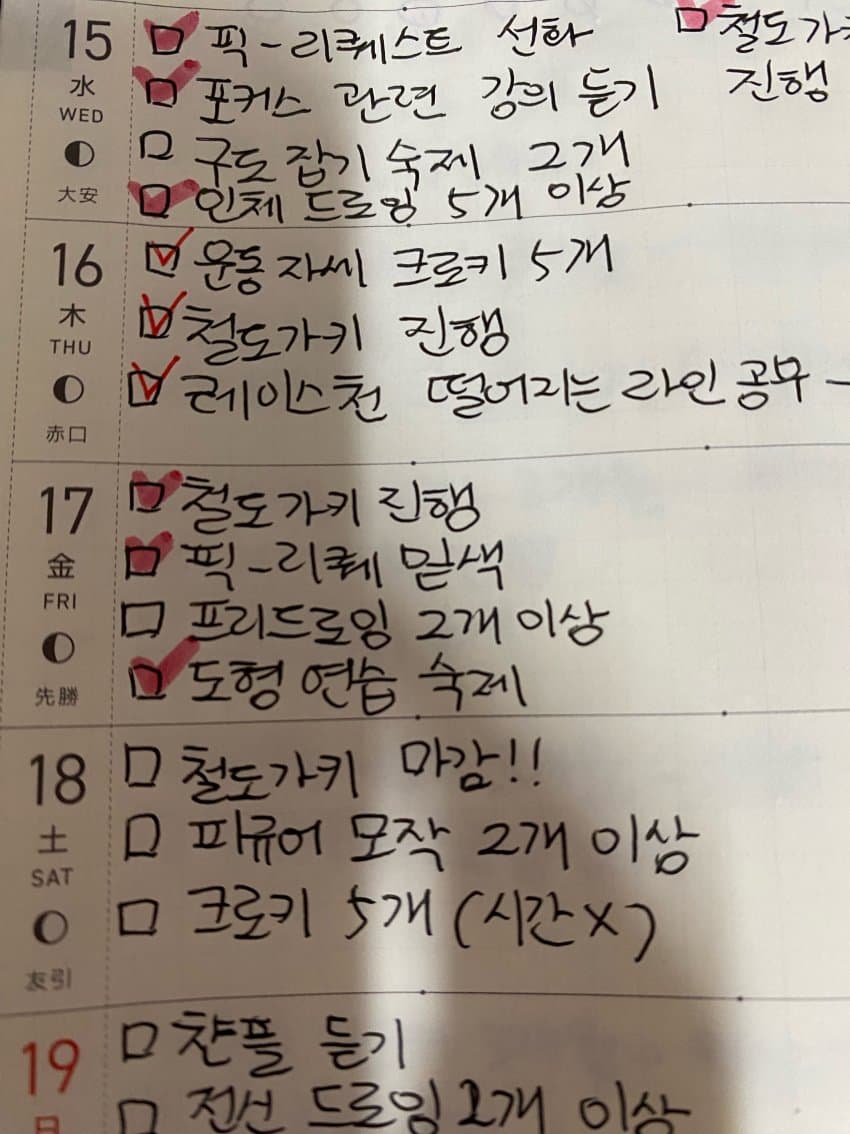 15
水
WED
大安
픽-리퀘스트 선화
철도가키
진행
포커스 관련 강의 듣기
구도 잡기 숙제 2개
인체 드로잉 5개 이상
16
木
THU
赤口
운동자세 크로키 5개
철도가키 진행
레이스천 떨어지는 라인 공부 -
17
金
FRI
先勝
철도가키 진행
픽-리퀘 밑색
프리드로잉 2개 이상
도형 연습 숙제
18
土
SAT
友引
철도가키 마감!!
피규어 모작 2개 이상
크로키 5개 (시간X)
19
日
챤플 듣기
전선 드로잉 2개 이상